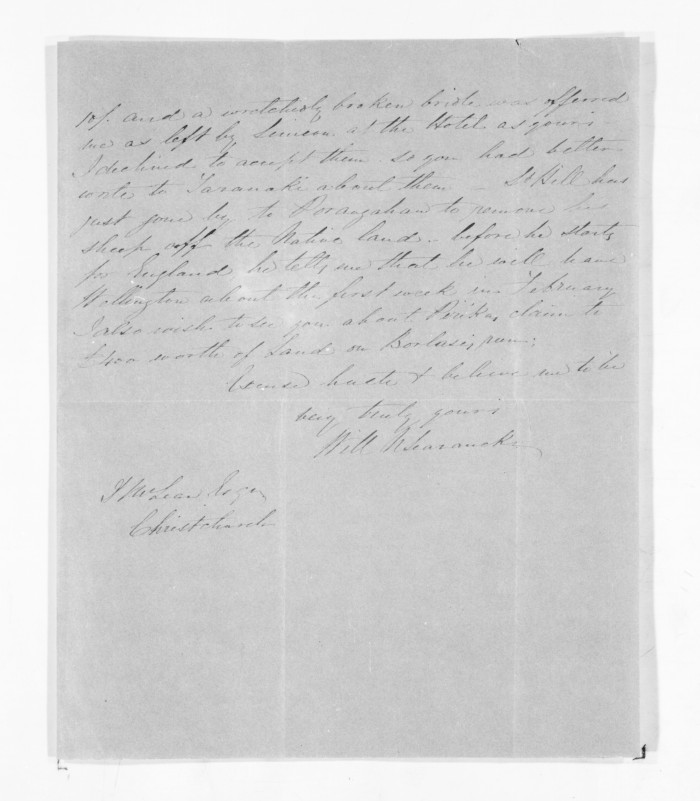 10/. and a wretchedly broken bridle was offered
me as left by Simeon at the Hotel as yours -
I declined to accept them so you had better
write to Taranaki about them - St Hill has
just gone by to Porangahau to remove his
sheep off the Native land - before he starts
for England he tells me that he will leave
Wellington about the first week in February
I also wish to see you about claim to
£400 worth of Land on run;
Excuse haste & believe me to be
very truly yours
Will N Searancke
McLean Esqre
Christchurch